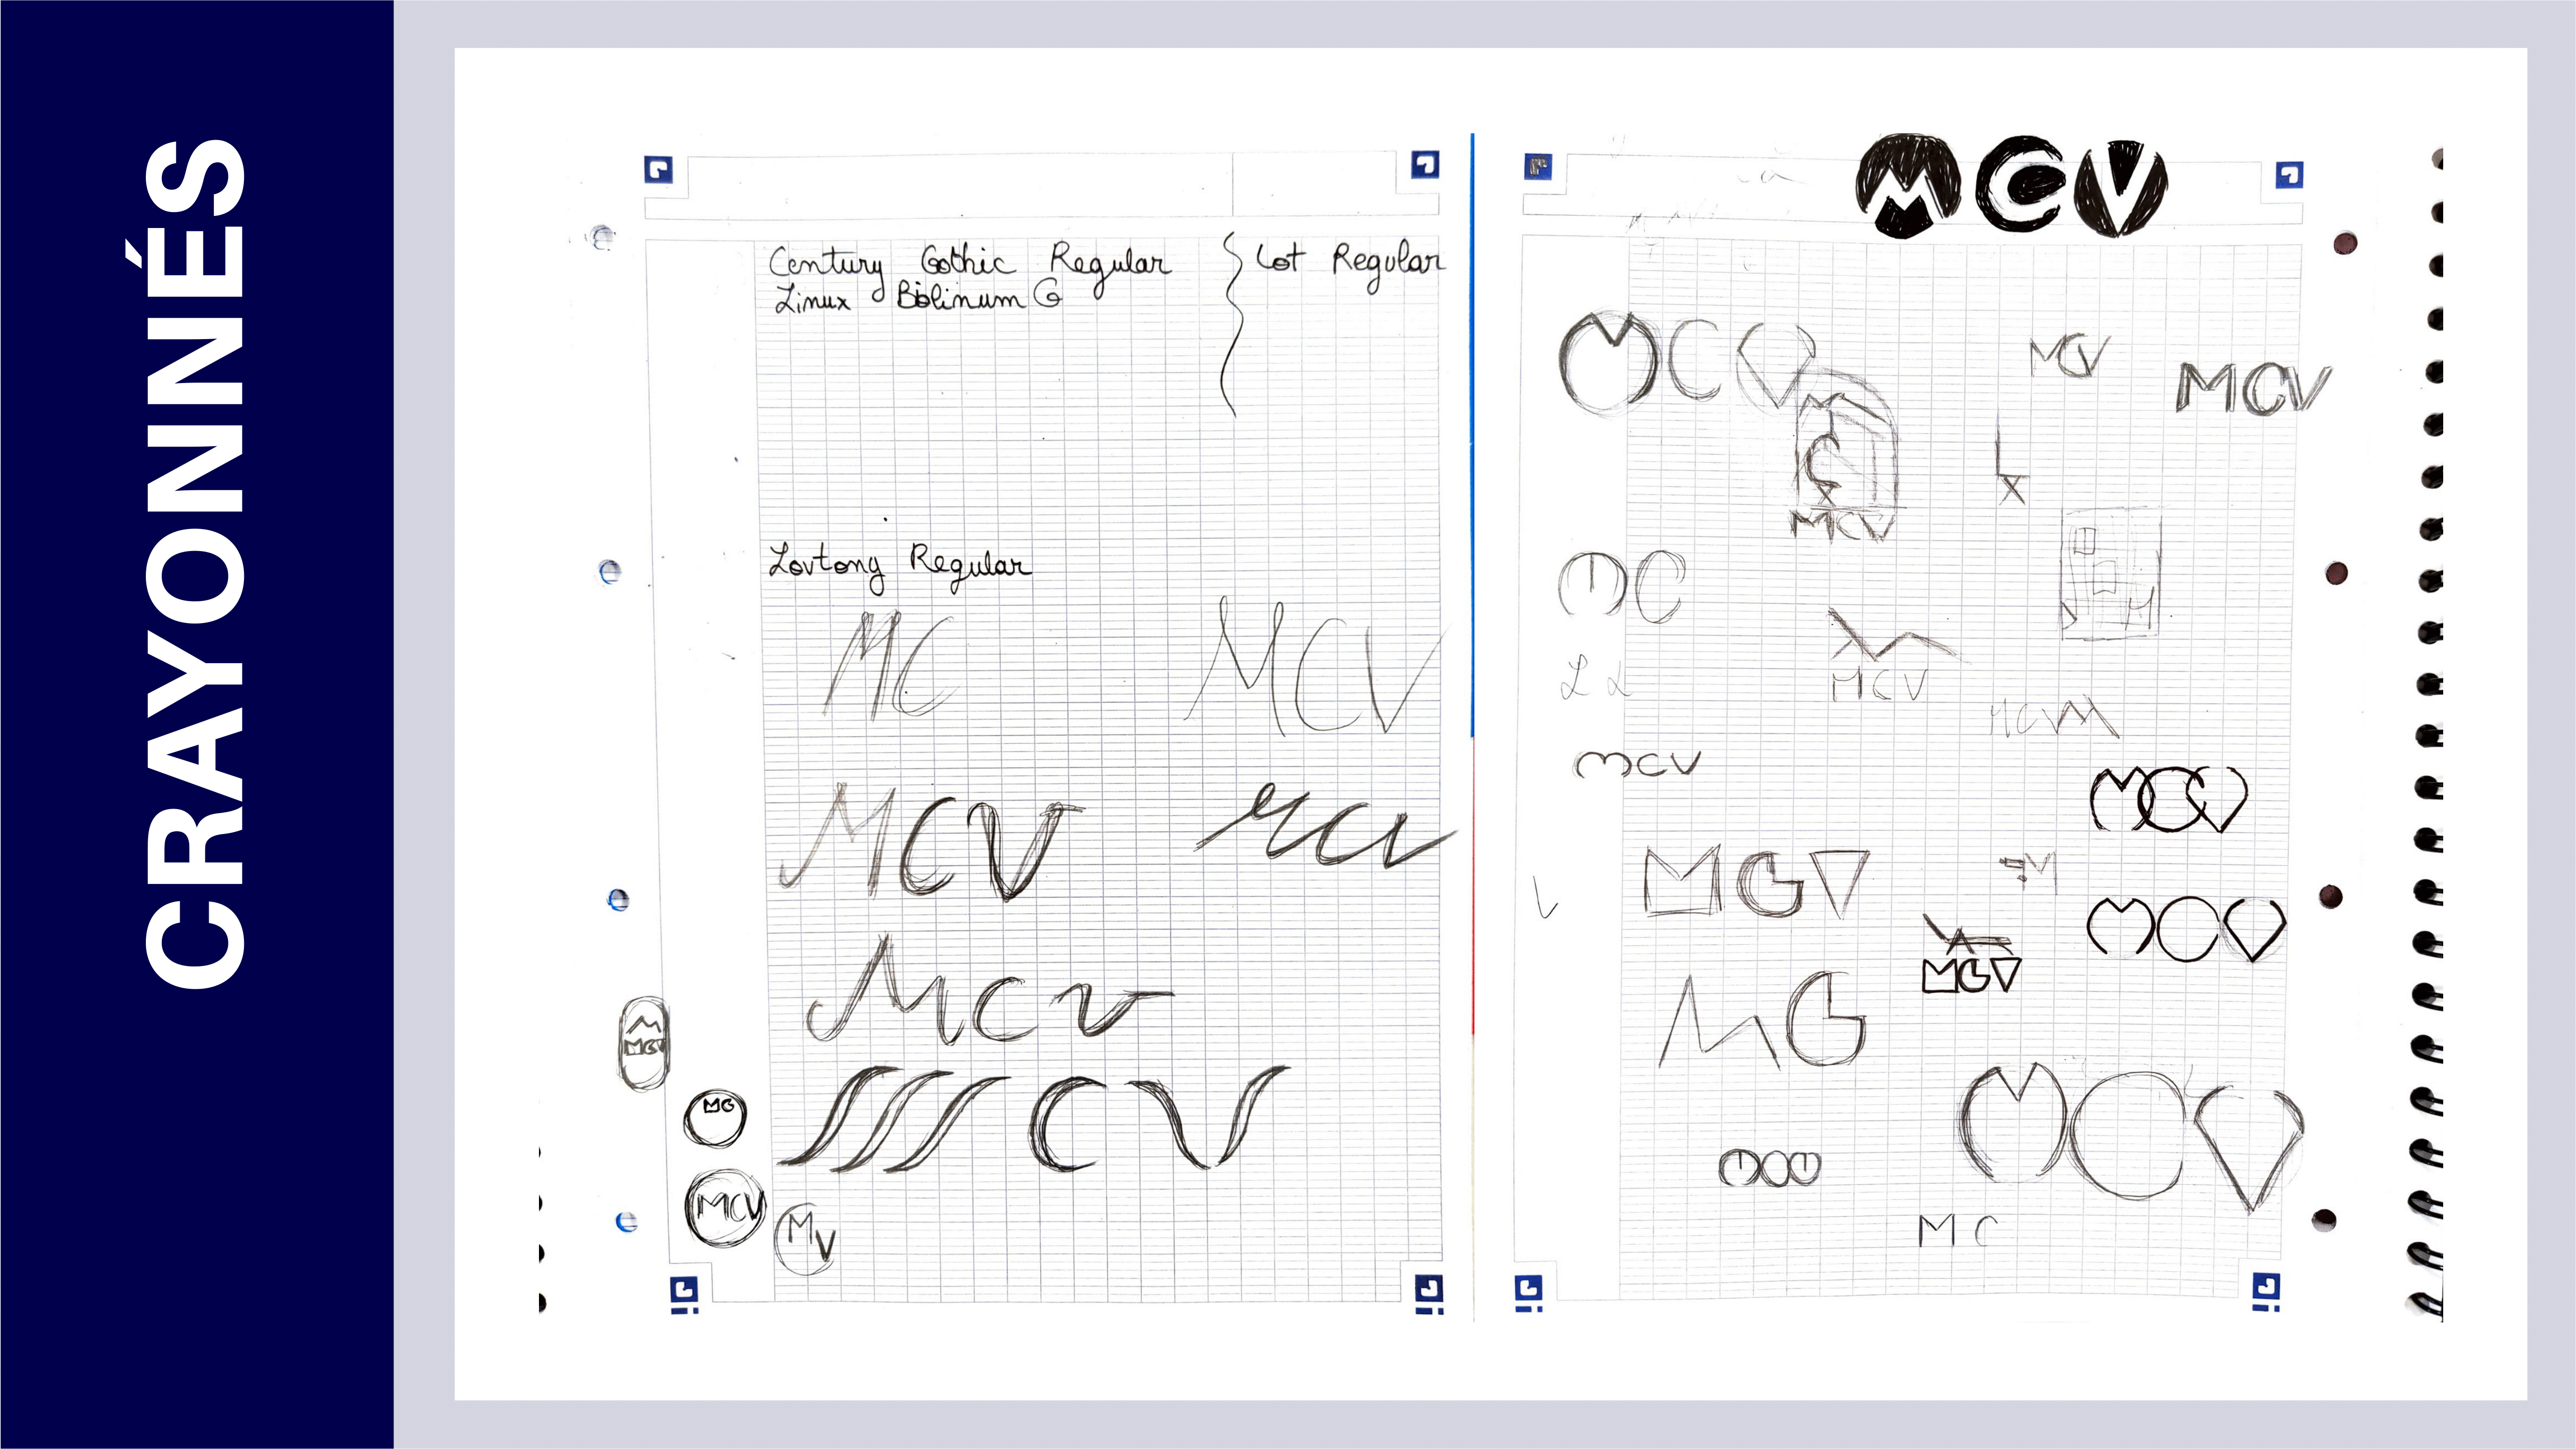 CRAYONNÉS
Century Gothic Regular
Linux Biolinum G
Lot Regular
Lovtony Regular
MC
MCV
MCV
MCV
MCV
CV
M
MCV
MG
MCV
MV
MCV
MCV
MCV
MCV
MCV
MC
MCV
MCV
MCV
MCV
MCV
MCV
MCV
MG
MCV
MC